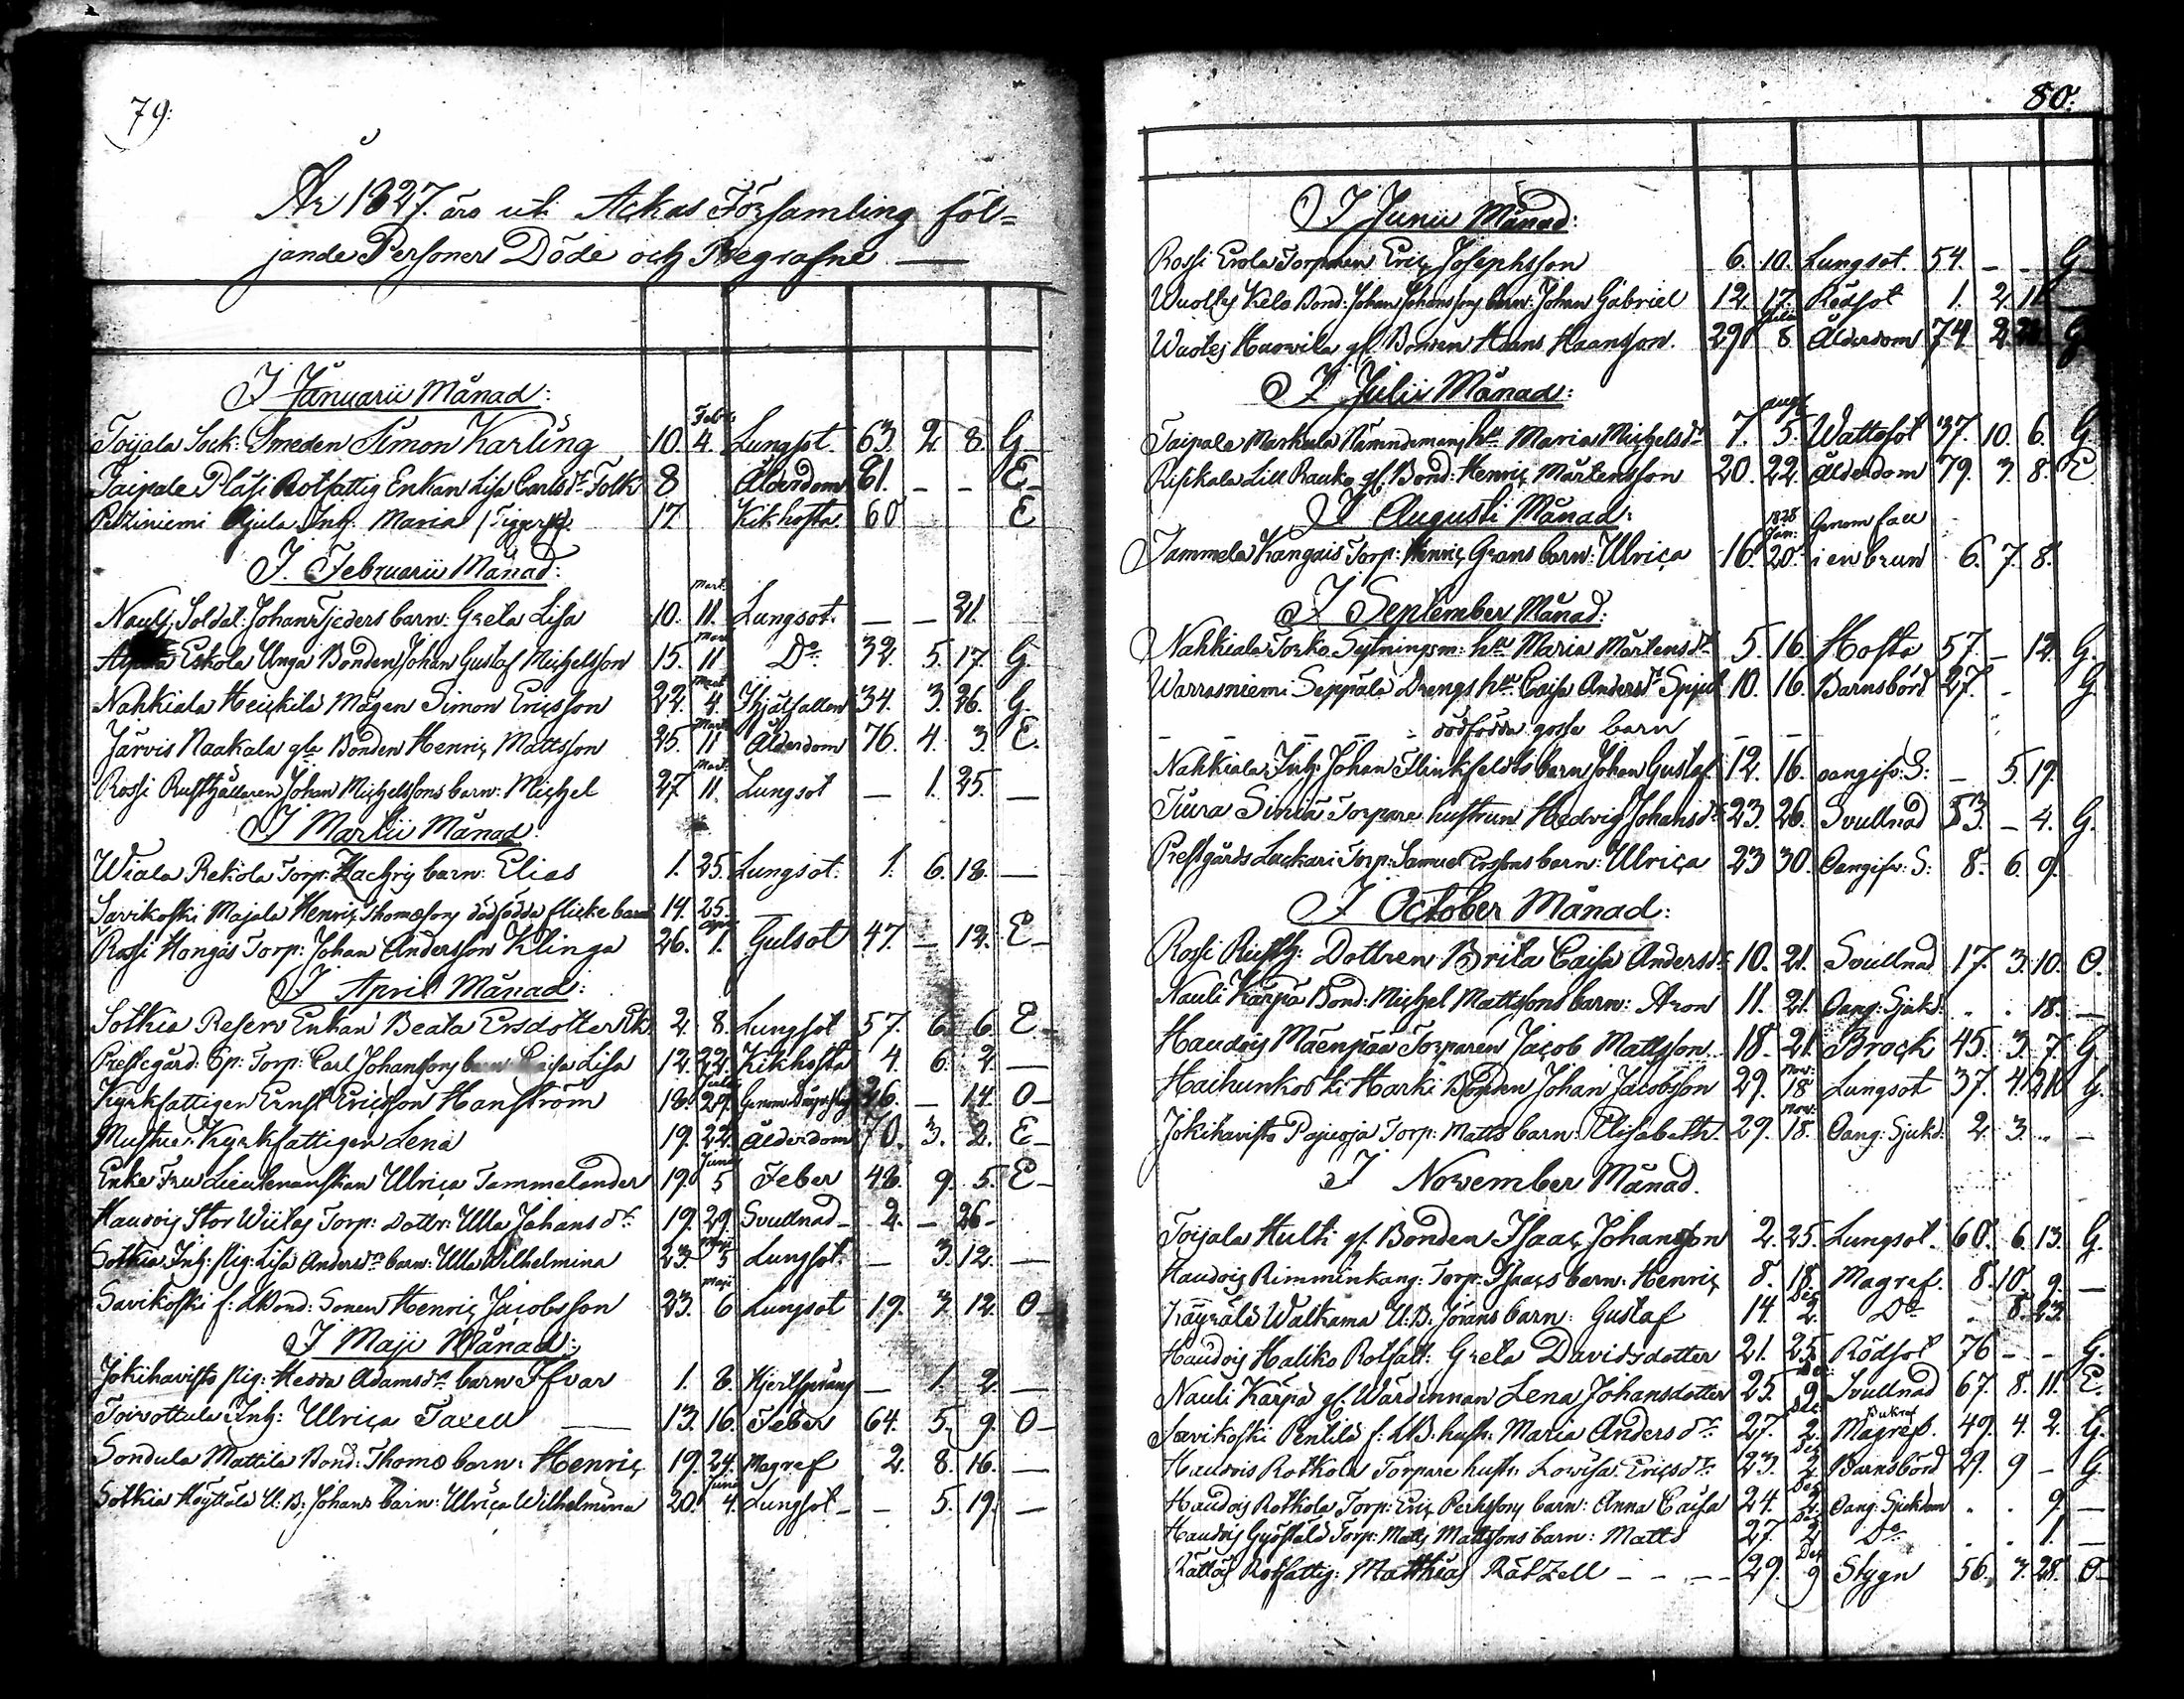 79.
År 1827. äro uti Ackas Församling föl=
jande Personer Döde och Begrafne —
I Januarii Månad:
Toijala Sock: Smeden Simon Karling 10. Febr: 4. Lungsot. 63. 2. 8. G
Taipale Pläsi Rotfattig Enkan Lisa Carlsdr Folk 8 Ålderdom 81. – – E
Ajula Inh: Maria 17 Kikhosta 60 E
I Februarii Månad:
Nauli Soldat: Johan Tjeders barn: Greta Lisa 10. Mart: 11. Lungsot. – – 21
Eskola Unga Bonden Johan Gustaf Michelsson 15. Mar 11 Do 32. 5. 17. G
Nahkiala Heickilä Mågen Simon Ericsson 22. Mart 4. Ihjälfallen 34. 3. 26. G.
Järvis Naakala gla Bonden Henric Mattsson 25. Mart: 11 Ålderdom 76. 4. 3. E.
Rossi Rusthållaren Johan Michelssons barn: Michel 27 Mart: 11. Lungsot – 1. 25. –
I Martii Månad:
Wiala Rekola Torp: Zachris barn: Elias 1. 25. Lungsot: 1. 6. 18. –
Savikoski Majala Henric Thomæsons dödfödda flicke barn 14. 25.
Rossi Hongas Torp: Johan Andersson Klinga 26. Apr 1. Gulsot 47. – 12. E –
I April Månad:
Sotkia Reserv Enkan Beata Ersdotter 2. 8. Lungsot 57. 6. 6. E.
Prestegård. Torp: Carl Johanssons barn Caisa Lisa 12. 22. Kikhosta 4. 6. 2. –
Kyrkfattigen Ernst Ericsson Hanström 18. 29. Genom 26. – 14. O –
Kyrkfattigen Lena 19. 22. Ålderdom 70. 3. 2. E –
Enke Fru Lieutenantskan Ulrica Tammelander 19. Junii 5 Feber 48. 9. 5. E –
Haudois Stor Wiilas Torp: Dottr: Ulla Johansdr 19. 29. Svullnad – 2. – 26 –
Sotkia Inh: pig: Lisa Andersdrs barn: Ulla Wilhelmina 23. Maji 5 Lungsot. – 3. 12. –
Savikoski f: d Bond: Sonen Henric Jacobsson 23. Maji 6 Lungsot 19. 3. 12. O –
I Maji Månad:
Jokihavisto pig: Hedda Adamsdrs barn Ifvar 1. 8. Hjertsprång – 1. 2. –
Toivottula Inh: Ulrica Taxell 13. 16. Feber 64. 5. 9. O –
Sondula Mattila Bond: Thomæ barn: Henric 19. 24. Magref 2. 8. 16. –
Sotkia Höyttälä U: B: Johans barn: Ulrica Wilhelmina 20. Junii 4. Lungsot – – 5. 19. –
80.
I Junii Månad:
Rossi Erola Torparen Eric Josephsson 6. 10. Lungsot. 54. – – G
Kela Bond: Johan Johanssons barn: Johan Gabriel 12. 17. Rödsot 1. 2. 11.
gl. Bonden Hans Hansson. 29 Julii 8 Ålderdom 74. 2. G
I Julii Månad:
Taipale Markula Nämndemans hu Maria Michelsdr 7. Aug 5. Wattsot 37. 10. 6. G.
Risikala Lill Rauko gl. Bond: Henric Mårtensson 20. 22. Ålderdom 79. 3. 8. E
I Augusti Månad:
Tammela Kangais Torp: Henric Grans barn: Ulrica 16. 1828 Jan: 20. Genom fall
i en brun 6. 7. 8.
I September Månad:
Nahkiala Torko Sytningsm: hu Maria Mårtensdr 5. 16. Hosta 57. – 12. G.
Warrasniemi Seppälä Drengs hu Caisa Andersdr 10. 16. Barnsbörd 27. – G
– – – – dödfödda gosse barn – –
Nahkiala Inh: Johan Flinkfeldts barn Johan Gustaf 12. 16. oangifv: S: – 5. 19.
Tiura Torpare hustrun Hedvig Johansdr 23. 26. Svullnad 53. – 4. G.
Prestgårds Laukari Torp: Samuel barn: Ulrica 23 30. Oangifv: S: 8. 6. 9.
I October Månad:
Rossi Rusth: Dottren Brita Caisa Andersdr 10. 21. Svullnad. 17. 3. 10. O.
Nauli Kärpä Bond: Michel Mattssons barn: Aron 11. 21. Oang: Sjukd: . . 18. –
Haudois Mäenpää Torparen Jacob Mattsson 18. 21. Brock 45. 3. 7. G
Haihunkoski Harki Bonden Johan Jacobsson 29. Nov: 18 Lungsot 37. 4. 21. G.
Jokihavisto Pajuoja Torp: Matts barn: Elisabeth. 29. Nov: 18. Oang: Sjukd: 2. 3. .. –
I November Månad.
Toijala Hulti gl. Bonden Isaac Johansson 2. 25. Lungsot. 60. 6. 13. G.
Haudois Rimminkang: Torp: Isaacs barn: Henric 8. 18. Magref. 8. 10. 9. –
Walkama U: B: Jörans barn: Gustaf 14. Dec 2. Do . 8. 23.
Haudois Haliko Rotfatt: Greta Davidsdotter 21. 25. Rödsot 76 – – G.
Nauli Kärpä gl. Wärdinnan Lena Johansdotter 25. Dec 9 Svullnad 67. 8. 11. E.
Savikoski Pentilä f: d B: hustr: Maria Andersdr 27. Dec 2. Magref. 49. 4. 2. G.
Haudois Rotkola Torpare hustr: Lovisa Ericsdr 23. Dec 2. Barnsbörd 29. 9 – G
Haudois Rotkola Torp: Eric barn: Anna Caisa 24. Dec 2. Oang: Sjukdom . . 9. –
Haudois Torp: Matts Mattssons barn: Matts 27 Dec 2 Do . . 1. –
Rotfattig: Matthias Rätzell – – – 29. Dec 9 Stygn 56. 7. 28. O –